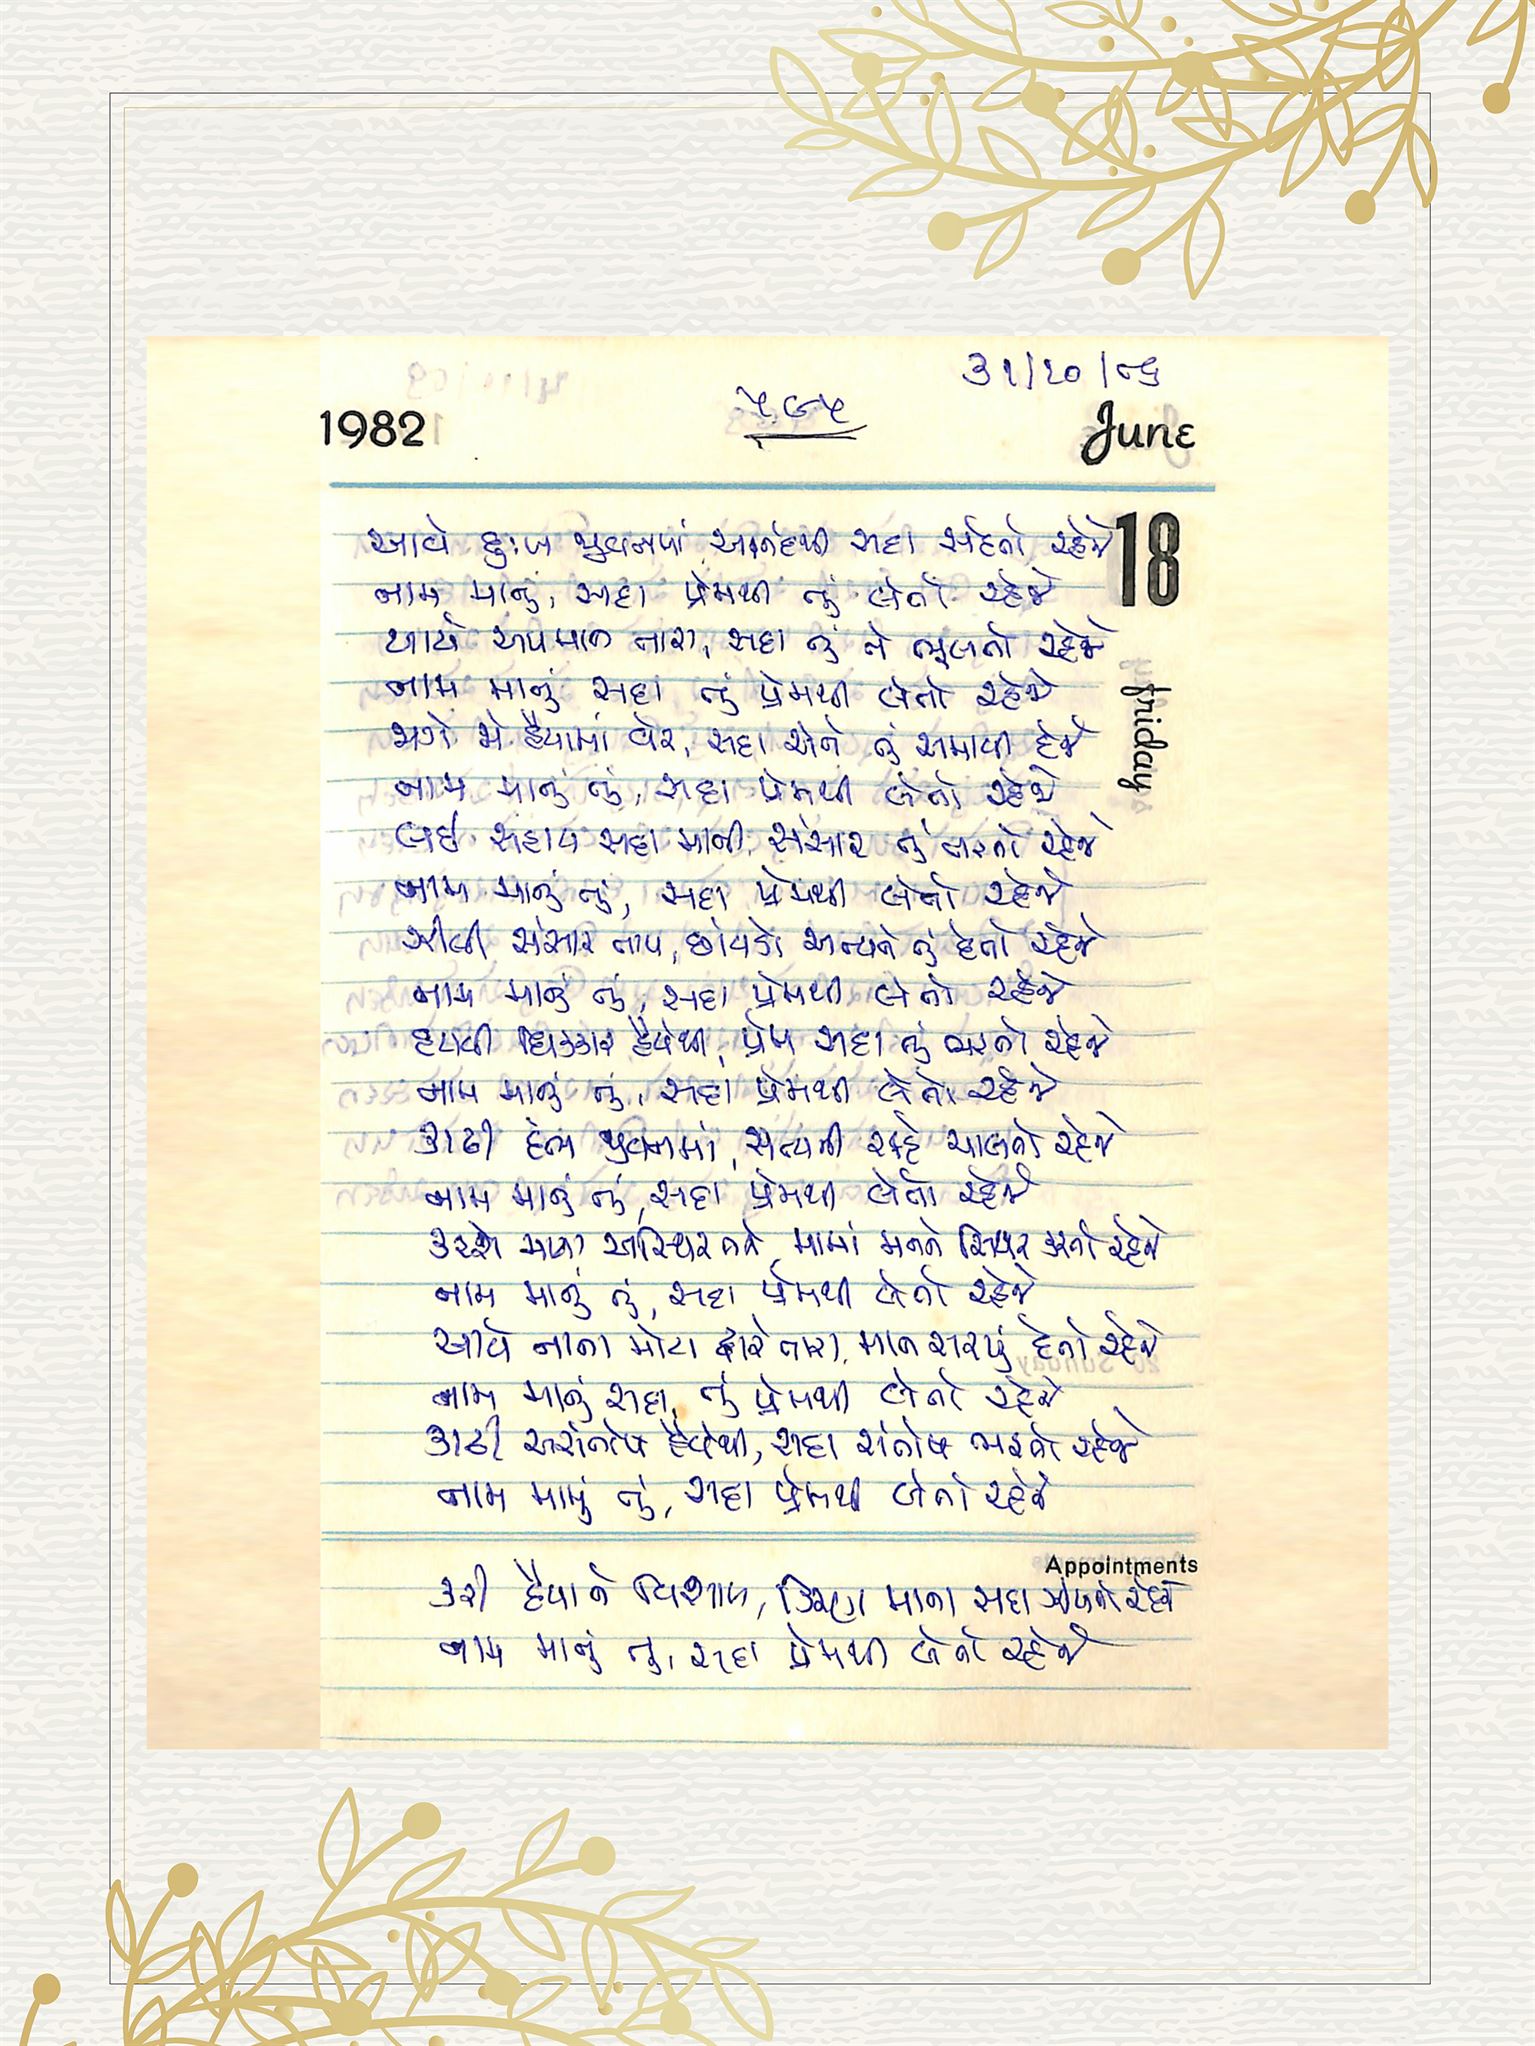 ૩૧/૧૦/૮૬
1982
૫૯૫
June
આવે દુઃખ જીવનમાં, આનંદથી સદા સહેતો રહેજે
18
નામ માનું, સદા પ્રેમથી તું લેતો રહેજે
થાયે અપમાન તારા, સદા તું તે ભૂલતો રહેજે
નામ માનું સદા તું પ્રેમથી લેતો રહેજે
friday
જાગે જો હૈયામાં વેર, સદા એને તું સમાવી દેજે
નામ માનું તું, સદા પ્રેમથી લેતો રહેજે
લઈ સહાય સદા માની, સંસાર તું તરતો રહેજે
નામ માનું તું, સદા પ્રેમથી લેતો રહેજે
ઝીલી સંસાર તાપ, છાંયડો અન્યને તું દેતો રહેજે
નામ માનું તું, સદા પ્રેમથી લેતો રહેજે
હટાવી ધિક્કાર હૈયેથી, પ્રેમ સદા તું ભરતો રહેજે
નામ માનું તું, સદા પ્રેમથી લેતો રહેજે
કાઢી દંભ જીવનમાં, સત્યની રાહે ચાલતો રહેજે
નામ માનું તું, સદા પ્રેમથી લેતો રહેજે
કરશે માયા અસ્થિર તને, મામાં મનને સ્થિર કરતો રહેજે
નામ માનું તું, સદા પ્રેમથી લેતો રહેજે
આવે નાના મોટા દ્વારે તારા, માન સરખું દેતો રહેજે
નામ માનું સદા, તું પ્રેમથી લેતો રહેજે
કાઢી અસંતોષ હૈયેથી, સદા સંતોષ ભરતો રહેજે
નામ માનું તું, સદા પ્રેમથી લેતો રહેજે
Appointments
કરી હૈયાને વિશાળ, કિરણો માના સદા ઝીલતો રહેજે
નામ માનું તું, સદા પ્રેમથી લેતો રહેજે